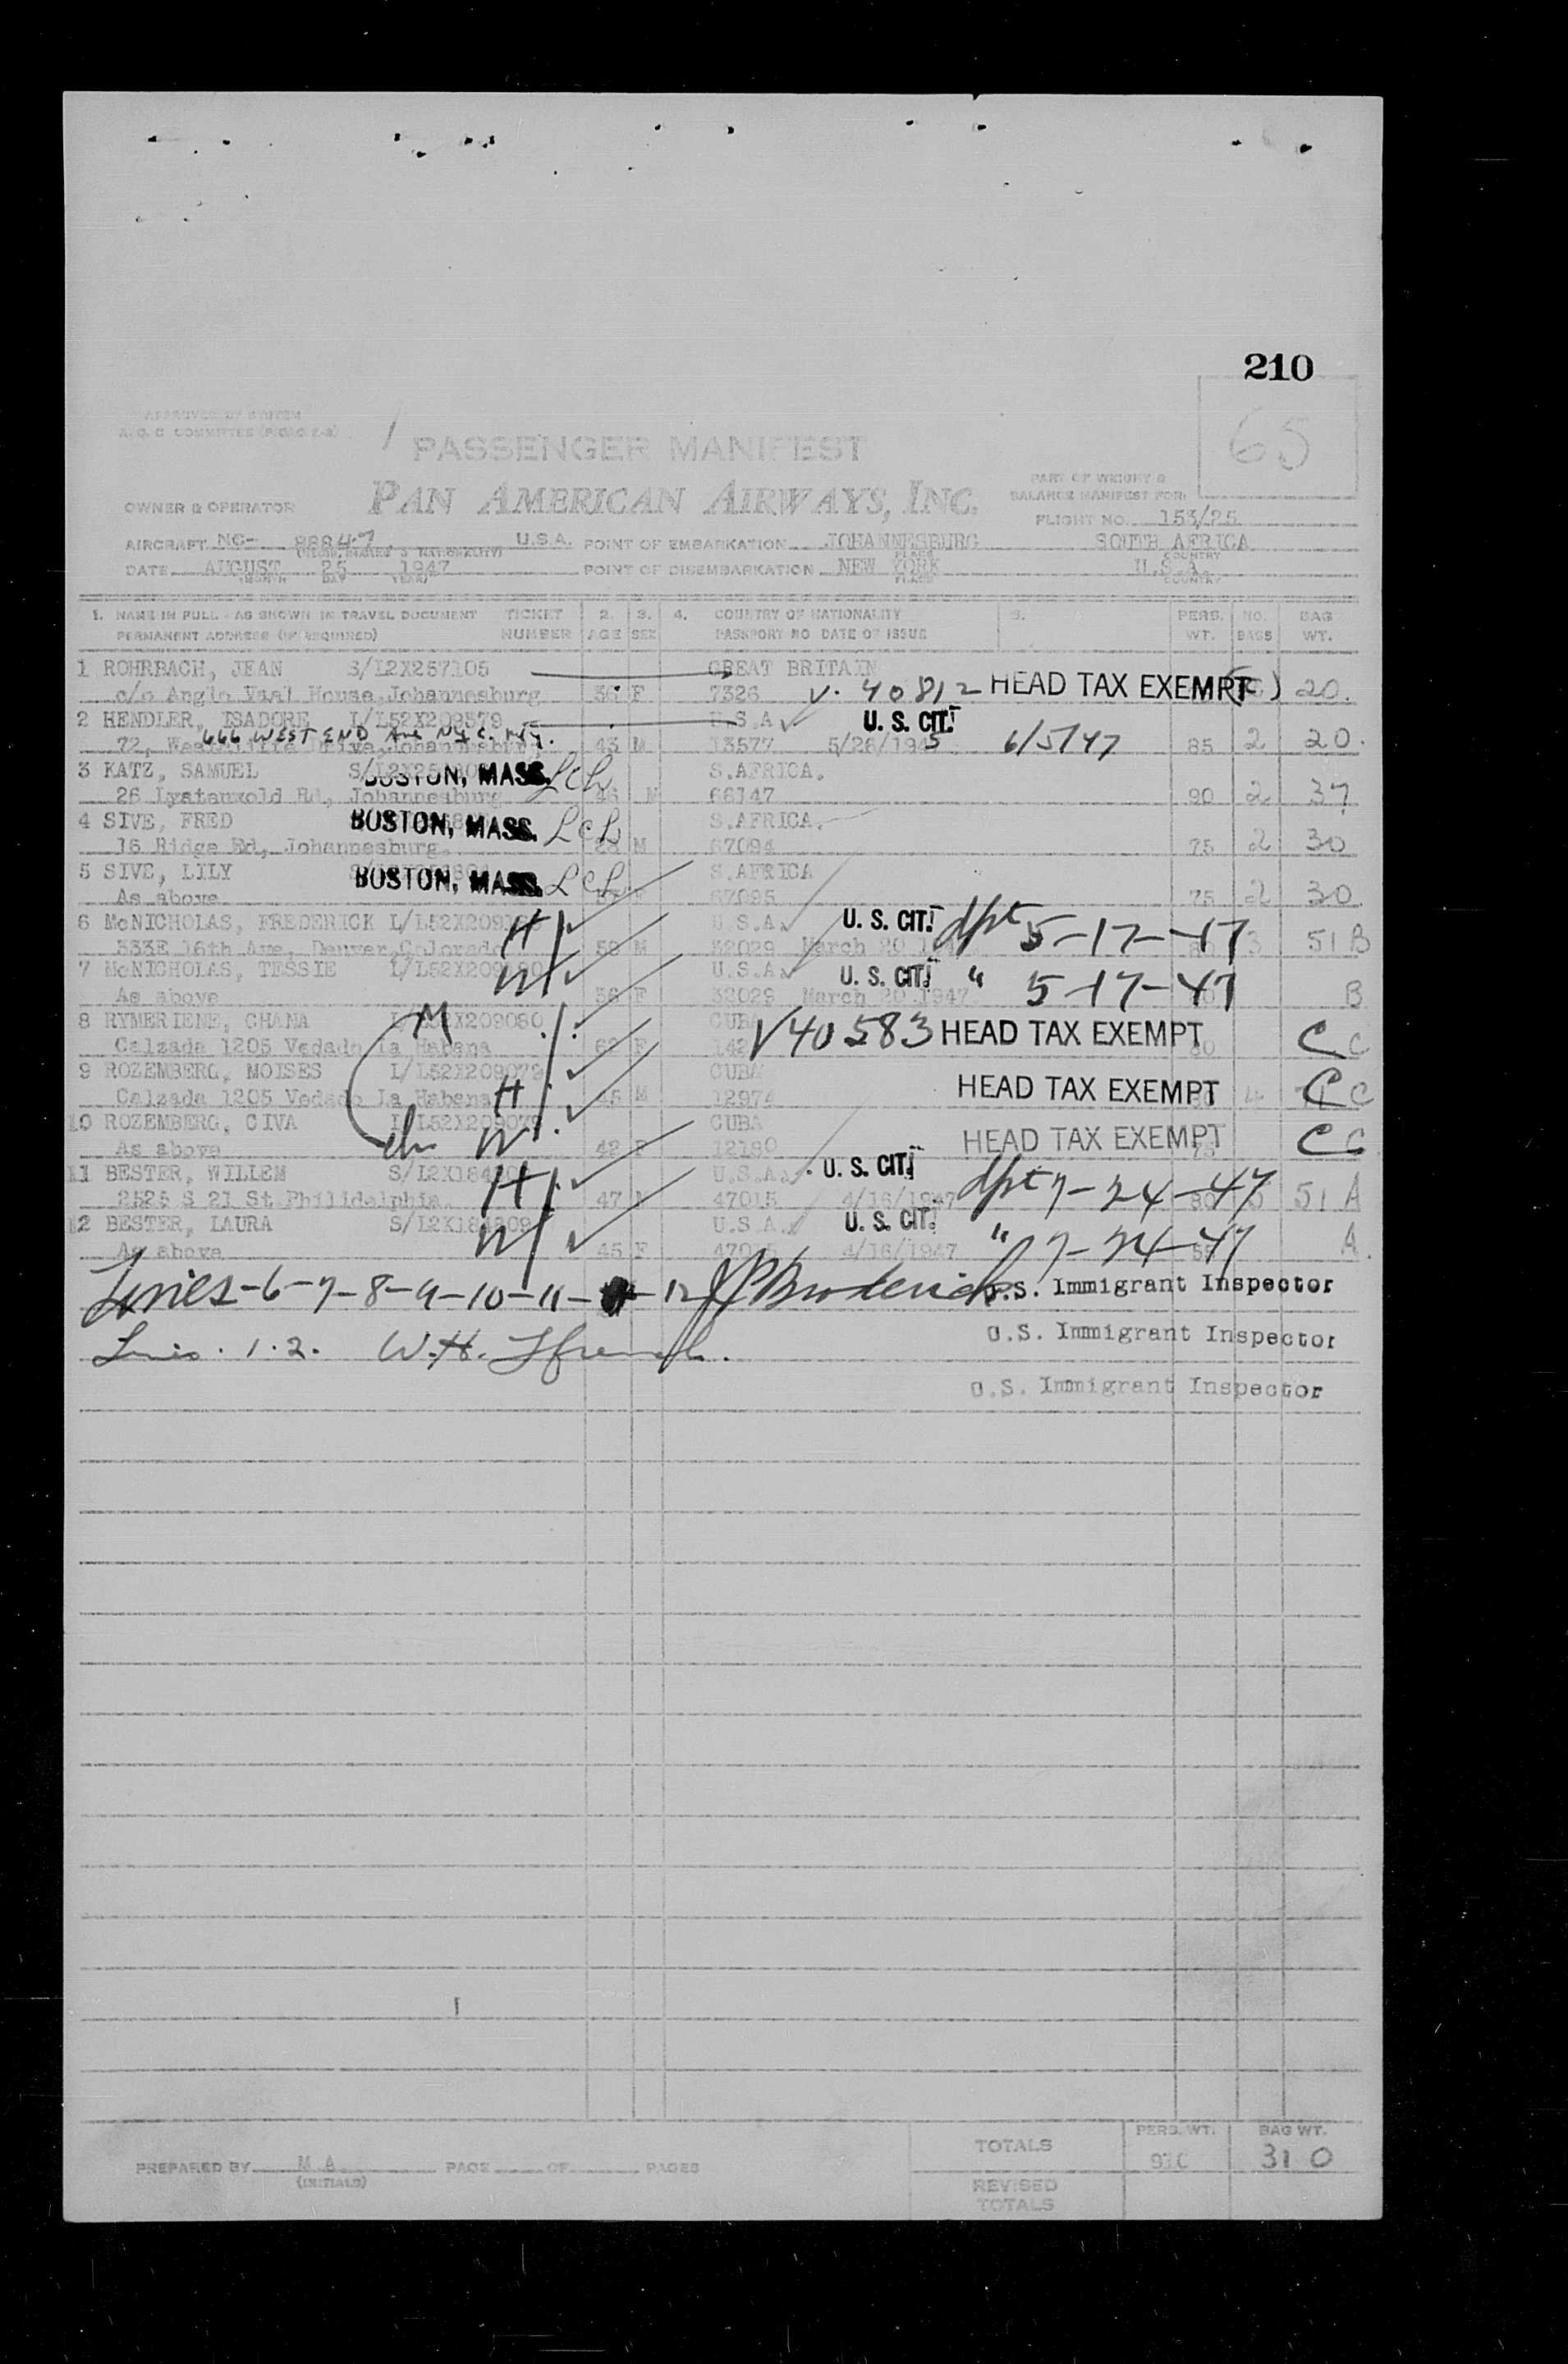 210
APPROVED BY SYSTEM
65
PASSENGER MANIFEST
PART OF WEIGHT &
BALANCE MANIFEST FOR:
OWNER & OPERATOR PAN AMERICAN AIRWAYS, INC.
FLIGHT NO. 153/25
AIRCRAFT NC- 88847 U.S.A. POINT OF EMBARKATION JOHANNESBURG SOUTH AFRICA
PLACE COUNTRY
DATE AUGUST 25 1947 POINT OF DISEMBARKATION NEW YORK U.S.A.
MONTH DAY YEAR PLACE COUNTRY
1. NAME IN FULL - AS SHOWN IN TRAVEL DOCUMENT TICKET 2. 3. 4. COUNTRY OF NATIONALITY 5. PERS. NO. BAG
PERMANENT ADDRESS (IF REQUIRED) NUMBER AGE SEX PASSPORT NO DATE OF ISSUE WT. BAGS WT.
1 ROHRBACH, JEAN S/L2X257105 GREAT BRITAIN
c/o Anglo Vaal House Johannesburg 36 F 7326 V. 40812 HEAD TAX EXEMPT 20.
2 HENDLER, ISADORE L/L52X209579 U.S.A U. S. CIT.
666 WEST END Ave NYC. NY.
72, Drive Johannesburg 43 M 13577 5/26/1945 6/5/47 85 2 20.
3 KATZ, SAMUEL BOSTON, MASS. S.AFRICA.
26 Rd, Johannesburg 46 M 66147 90 2 37
4 SIVE, FRED BOSTON, MASS. S.AFRICA.
16 Ridge Rd, Johannesburg. M 67094 75 2 30
5 SIVE, LILY BOSTON, MASS. S.AFRICA
As above F 67095 75 2 30.
6 McNICHOLAS, FREDERICK H U.S.A U. S. CIT. dpt 5-17-47
333E 16th Ave, Denver, Colorado 58 M 32029 March 20 3 51 B
7 McNICHOLAS, TESSIE W U.S.A U. S. CIT. " 5-17-47
As above 56 F 32029 March 20 1947 B
8 RYMERIENE, CHANA L/L52X209080 M CUBA V40583 HEAD TAX EXEMPT C
Calzada 1205 Vedado La Habana 62 F C
9 ROZEMBERG, MOISES L/L52X209079 CUBA HEAD TAX EXEMPT C
Calzada 1205 Vedado La Habana H 45 M 12974 C
10 ROZEMBERG, CIVA L/L52X209078 CUBA HEAD TAX EXEMPT C
As above W 42 F 12180 C
11 BESTER, WILLEM H U.S.A. U. S. CIT. dpt 7-24-47
2525 S 21 St Philidelphia. 47 M 47015 4/16/1947 80 51 A
12 BESTER, LAURA W U.S.A. U. S. CIT. " 7-24-47
As above 45 F 4/16/1947 55 A.
Lines-6-7-8-9-10-11- -12 JP Broderick U.S. Immigrant Inspector
U.S. Immigrant Inspector
Lines. 1.2. W.H.
U.S. Immigrant Inspector
TOTALS PERS. WT. BAG WT.
310
PREPARED BY M A PAGE OF PAGES
(INITIALS)
REVISED
TOTALS